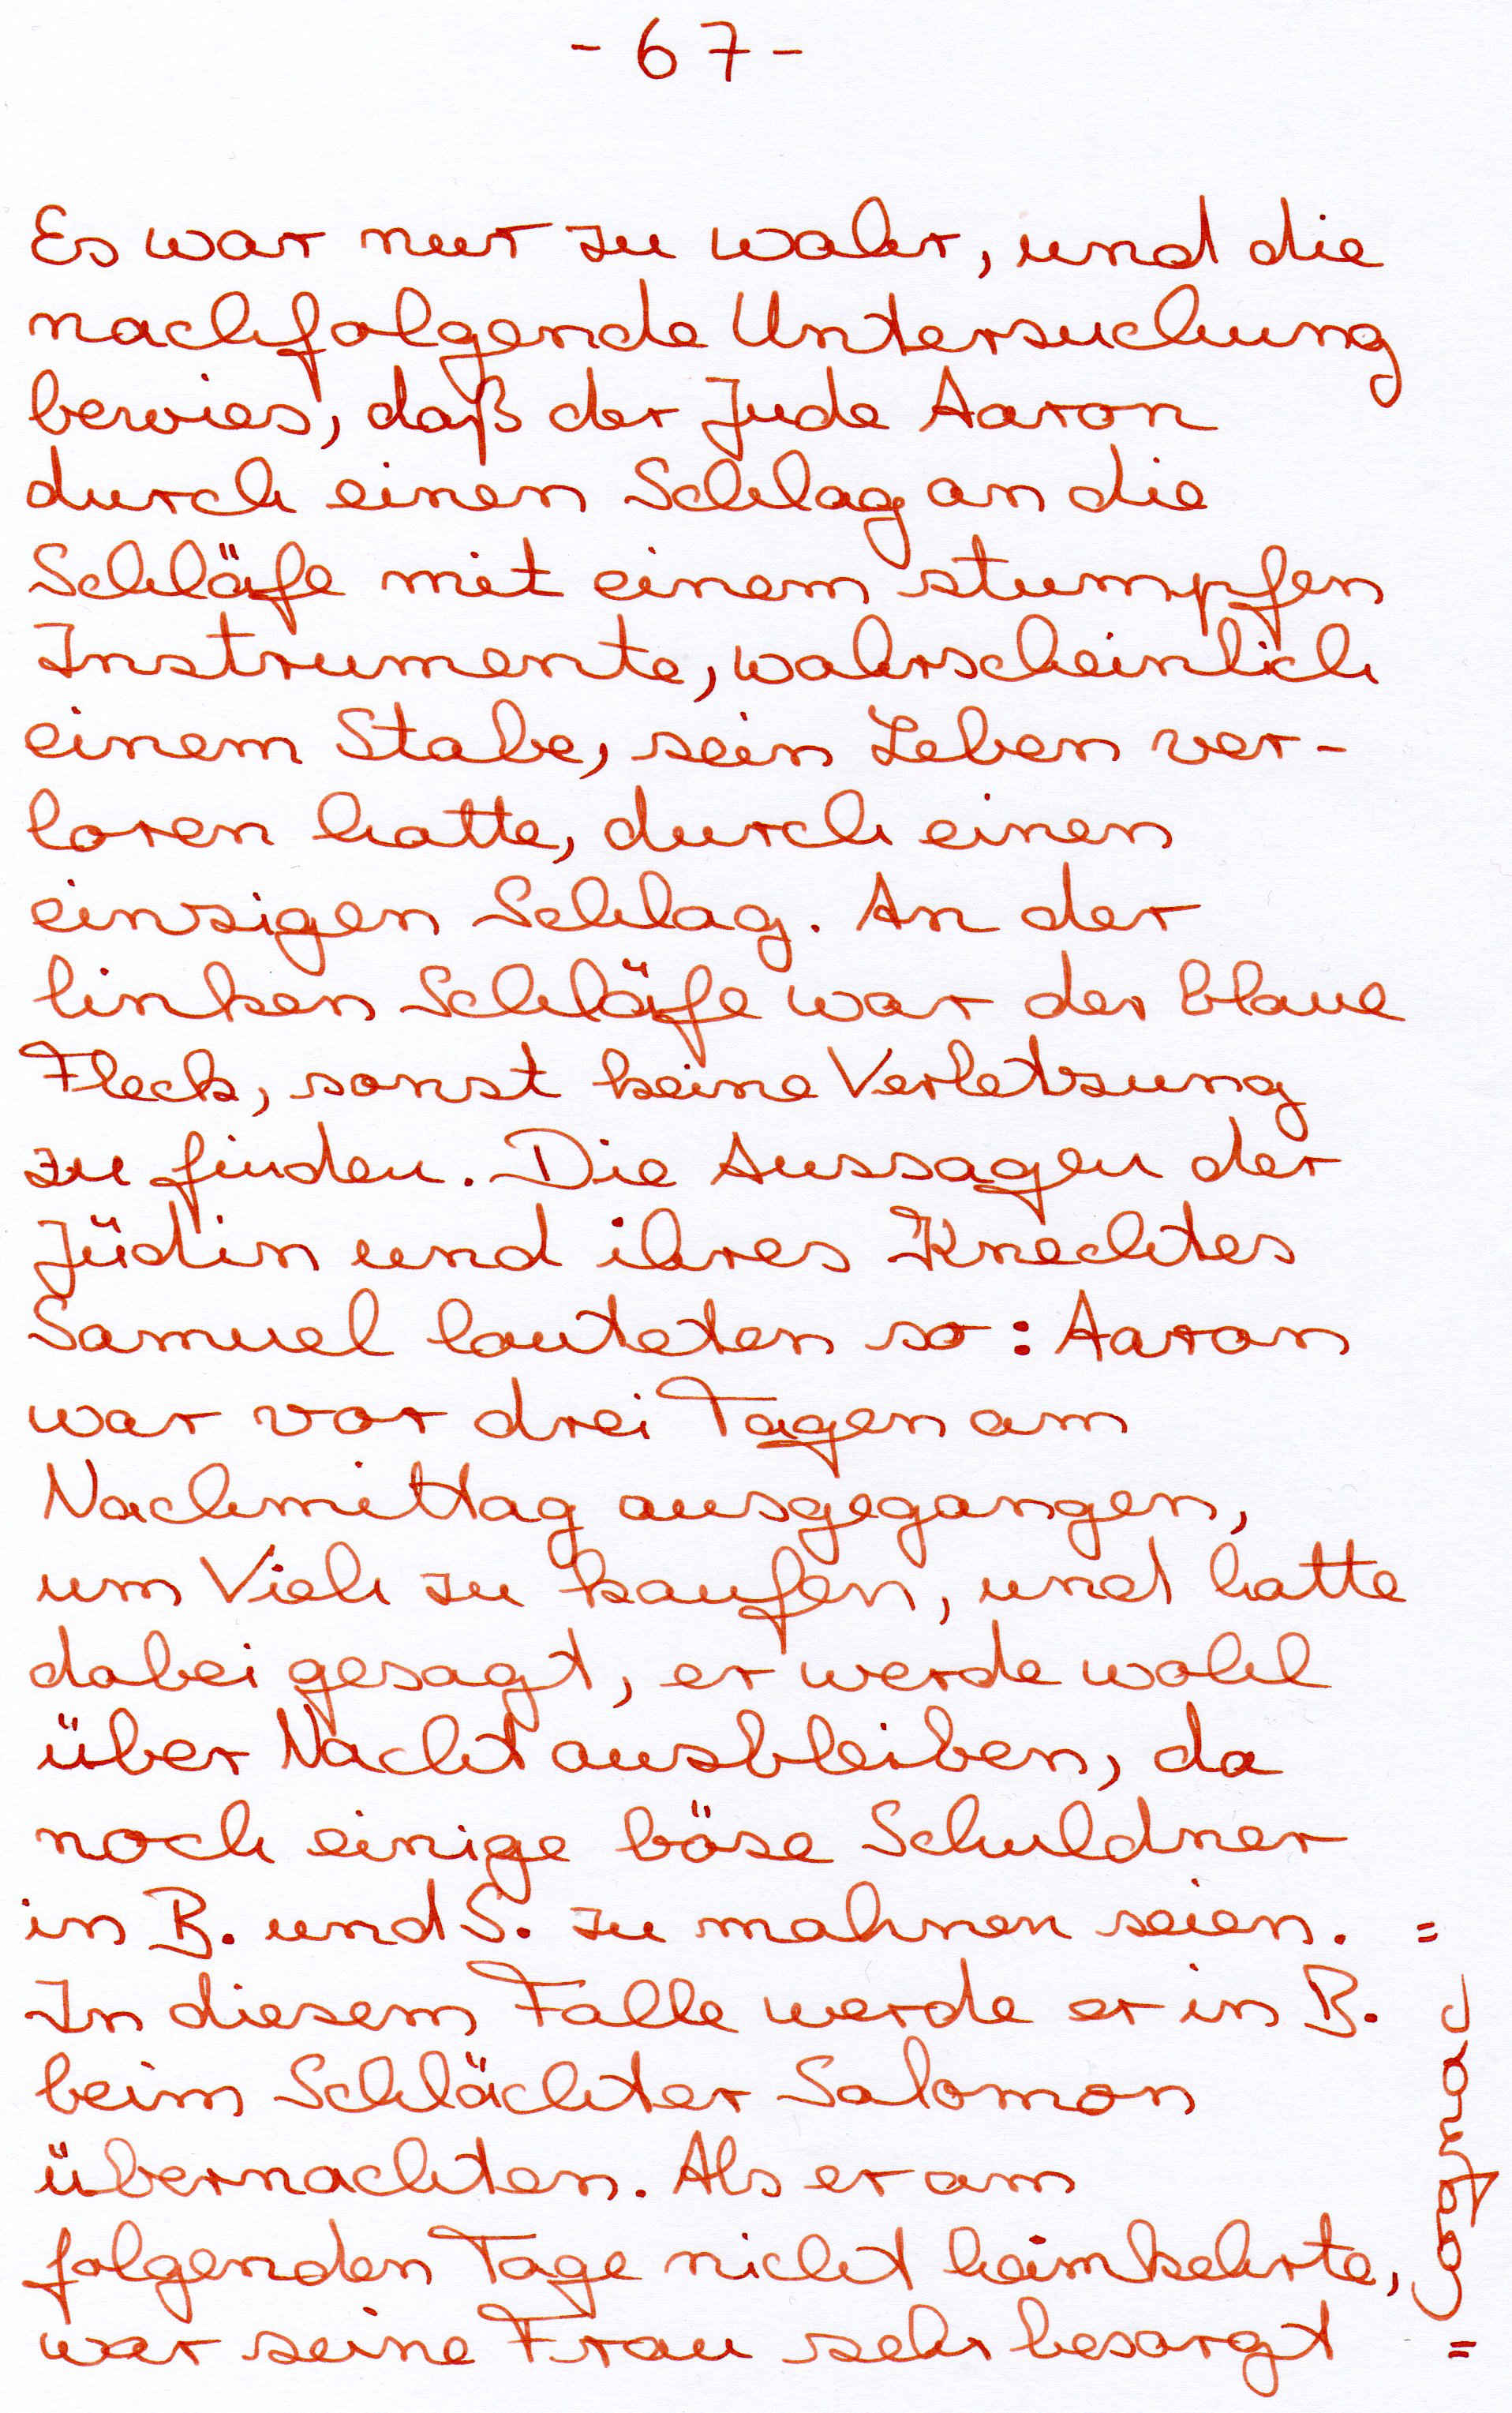 - 67 -
Es war nur zu wahr, und die
nachfolgende Untersuchung
bewies, daß der Jude Aaron
durch einen Schlag an die
Schläfe mit einem stumpfen
Instrumente, wahrscheinlich
einem Stabe, sein Leben ver-
loren hatte, durch einen
einzigen Schlag. An der
linken Schläfe war der blaue
Fleck, sonst keine Verletzung
zu finden. Die Aussagen der
Jüdin und ihres Knechtes
Samuel lauteten so: Aaron
war vor drei Tagen am
Nachmittag ausgegangen,
um Vieh zu kaufen, und hatte
dabei gesagt, er werde wohl
über Nacht ausbleiben, da
noch einige böse Schuldner
in B. und S. zu mahnen seien.
In diesem Falle werde er in B.
beim Schlächter Salomon
übernachten. Als er am
folgenden Tage nicht heimkehrte,
war seine Frau sehr besorgt